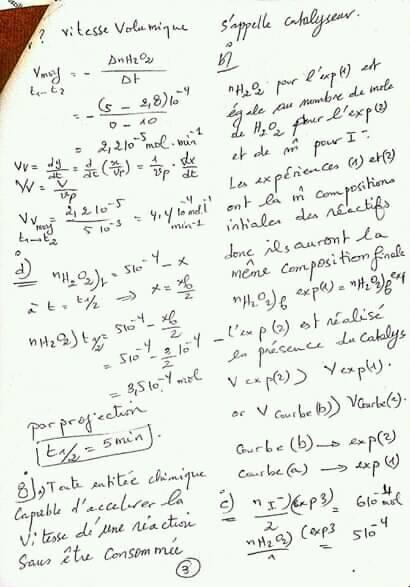 ? vitesse Volumique
Vmoy t1→t2 = - ΔnH2O2 / Δt
= - (5 - 2,8)10^-4 / (0 - 10)
= 2,2 10^-5 mol. min^-1
Vv = dy/dt = d/dt (x/Vp) = 1/Vp . dx/dt
Vv = V/Vp
Vv moy t1→t2 = 2,2 10^-5 / 5 10^-3 = 4,4 10^-4 mol.l^-1 min^-1
d) nH2O2)t = 5 10^-4 - x
à t = t1/2 ⇒ x = xf/2
nH2O2)t1/2 = 5 10^-4 - xf/2
= 5 10^-4 - 3/2 10^-4
= 3,5 10^-4 mol
par projection
t1/2 = 5 min.
8), Toute entitée chimique
Capable d'accelerer la
Vitesse d'une réaction
Sans être Consommée
s'appelle catalyseur.
b)
nH2O2 pour l'exp(1) est
égale au nombre de mole
de H2O2 pour l'exp(2)
et de m̂ pour I-.
Les expériences (1) et (2)
ont la m̂ compositions
intiales des réactifs
donc ils auront la
même composition finale
nH2O2)f exp(1) = nH2O2)f exp
- l'exp(2) est réalisé
en présence du Catalys
V exp(2) > V exp(1).
or V Courbe(b) > V Courbe(a).
Courbe (b) → exp(2)
Courbe (a) → exp(1)
c) nI-)(exp3) / 2 = 6 10^-4
nH2O2)(exp3 / 1 = 5 10^-4
3